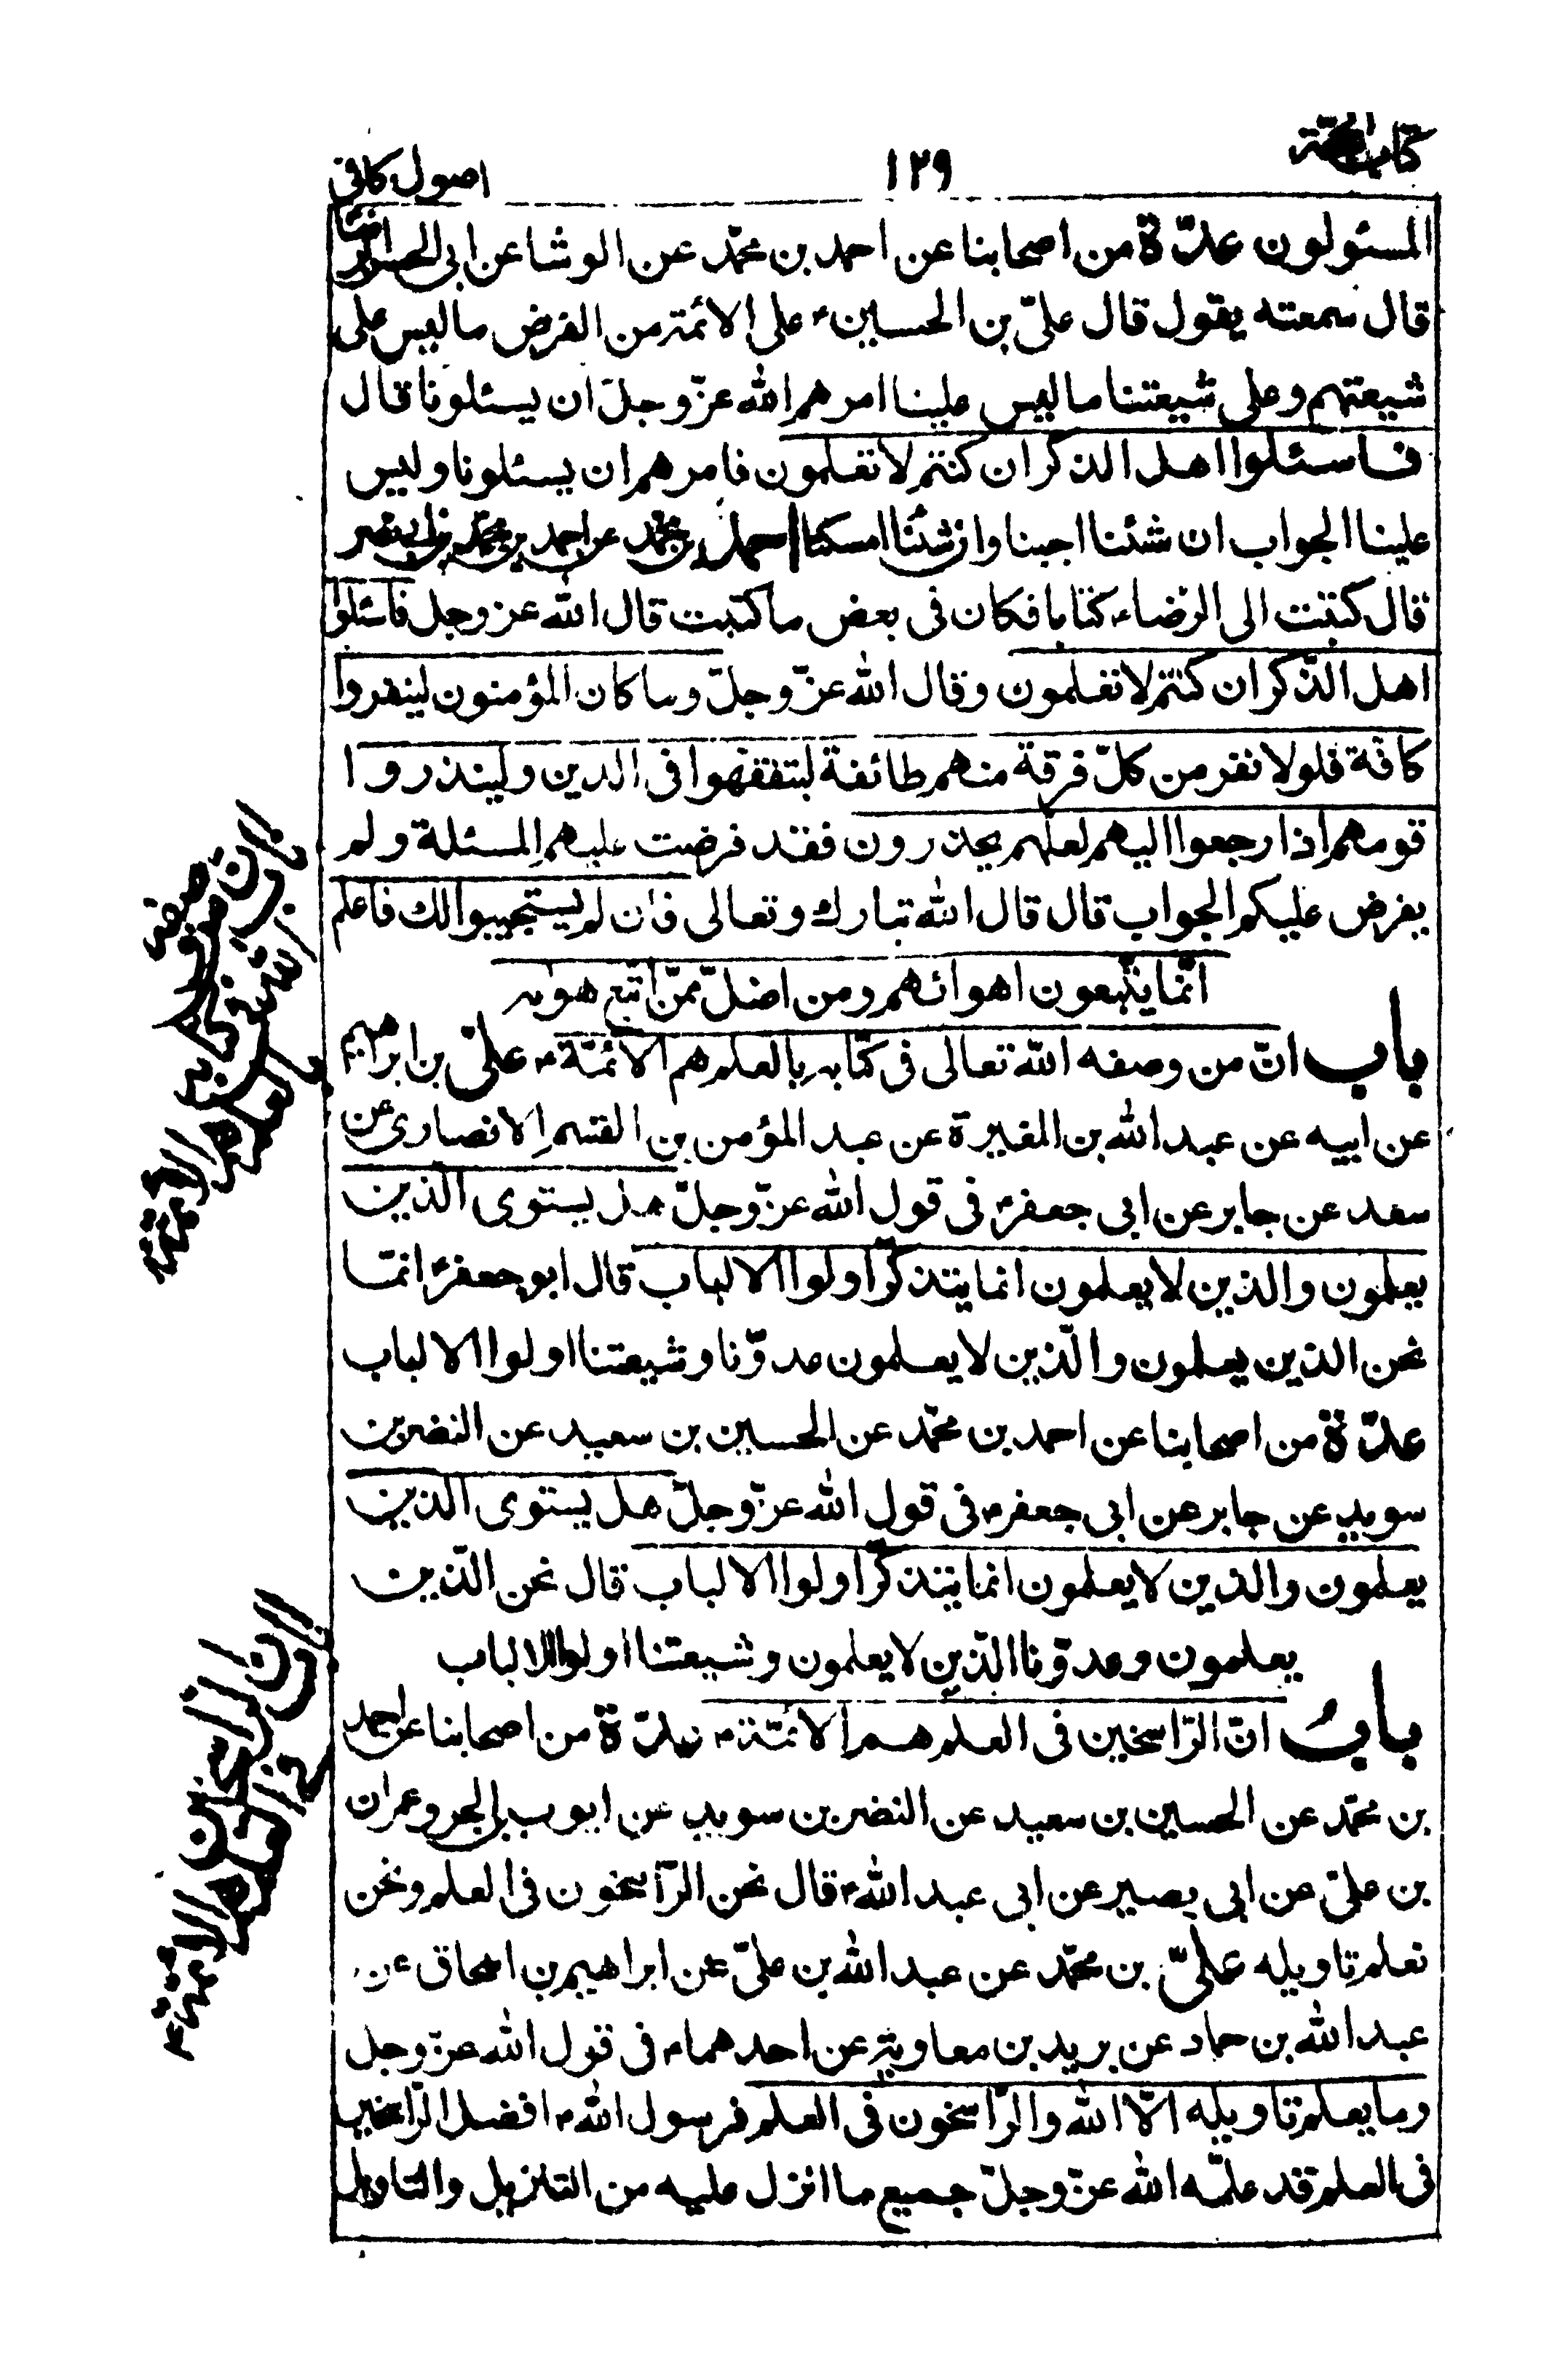 كتاب الحجة
١٢٩
اصول كافي
المسئولون عدّة من اصحابنا عن احمد بن محمّد عن الوشا عن ابى الحسن الرضا
قال سمعته يقول قال علىّ بن الحسينء على الائمة من الفرض ما ليس على
شيعتهم وعلى شيعتنا ما ليس علينا امرهم الله عزّ وجلّ ان يسئلونا قال
فاسئلوا اهل الذكر ان كنتم لا تعلمون فامرهم ان يسئلونا وليس
علينا الجواب ان شئنا اجبنا وان شئنا امسكنا احمد بن محمّد عن احمد بن محمّد بن ابى نصر
قال كتبت الى الرضاء كتابا فكان فى بعض ما كتبت قال الله عز وجل فاسئلوا
اهل الذّكر ان كنتم لا تعلمون وقال الله عزّ وجلّ وما كان المؤمنون لينفروا
كافة فلولا نفر من كلّ فرقة منهم طائفة ليتفقهوا فى الدين ولينذروا
قومهم اذا رجعوا اليهم لعلهم يحذرون فقد فرضت عليهم المسئلة ولم
يفرض عليكم الجواب قال قال الله تبارك وتعالى فان لم يستجيبوا لك فاعلم
انّما يتّبعون اهوائهم ومن اضلّ ممّن اتّبع هويه
باب انّ من وصفه الله تعالى فى كتابه بالعلم هم الائمّةء علىّ بن ابراهيم
عن ابيه عن عبد الله بن المغيرة عن عبد المؤمن بن القسم الانصارى عن
سعد عن جابر عن ابى جعفرء فى قول الله عزّ وجلّ هل يستوى الذين
يعلمون والذين لا يعلمون انما يتذكّر اولوا الالباب قال ابو جعفرء انّما
نحن الذين يعلمون والّذين لا يعلمون عدوّنا وشيعتنا اولوا الالباب
عدّة من اصحابنا عن احمد بن محمّد عن الحسين بن سعيد عن النضر بن
سويد عن جابر عن ابى جعفرء فى قول الله عزّ وجلّ هل يستوى الذين
يعلمون والذين لا يعلمون انما يتذكّر اولوا الالباب قال نحن الّذين
يعلمون وعدوّنا الّذين لا يعلمون وشيعتنا اولوا الالباب
باب انّ الرّاسخين فى العلم هم الائمّةء عدّة من اصحابنا عن احمد
بن محمّد عن الحسين بن سعيد عن النضر بن سويد عن ايوب بن الحر وعمران
بن علىّ عن ابى بصير عن ابى عبد اللهء قال نحن الرّاسخون فى العلم ونحن
نعلم تاويله علىّ بن محمّد عن عبد الله بن علىّ عن ابراهيم بن اسحاق عن
عبد الله بن حماد عن بريد بن معاوية عن احدهماء فى قول الله عزّ وجل
وما يعلم تاويله الّا الله والرّاسخون فى العلم فرسول اللهء افضل الرّاسخين
فى العلم قد علّمه الله عزّ وجلّ جميع ما انزل عليه من التنزيل والتاويل
باب ان من وصفه
الله فى كتابه
بالعلم هم الائمّة
باب ان الراسخين
فى العلم هم الائمّةء